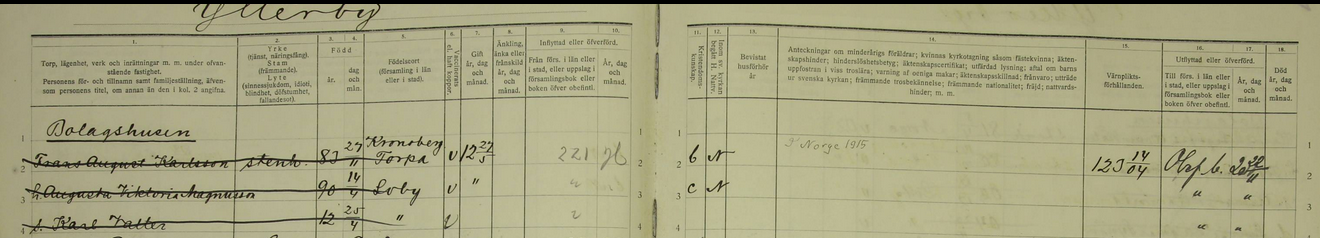 Ytterby
1. 2. 3. 4. 5. 6. 7. 8. 9. 10. 11. 12. 13. 14. 15. 16. 17. 18.
Torp, lägenhet, verk och inrättningar m. m. under ofvanstående fastighet.
Personens för- och tillnamn samt familjeställning, äfvensom personens titel, om annan än den i kol. 2 angifna.
Yrke
(tjänst, näringsfång).
Stam
(främmande).
Lyte
(sinnessjukdom, idioti, blindhet, döfstumhet, fallandesot).
Född
år.
dag och mån.
Födelseort
(församling i län eller i stad).
Vaccinerats el. haft koppor.
Gift
år, dag och månad.
Änkling, änka eller frånskild
år, dag och månad.
Inflyttad eller öfverförd.
Från förs. i län eller i stad, eller uppslag i församlingsbok eller boken öfver obefintl.
År, dag och månad.
Kristendomskunskap.
Inom sv. kyrkan begått H. Nattv.
Bevistat husförhör
år
Anteckningar om minderårigs föräldrar; kvinnas kyrkotagning såsom fästekvinna; äktenskapshinder; hinderslöshetsbetyg; äktenskapscertifikat; utfärdad lysning; aftal om barns uppfostran i viss troslära; varning af oeniga makar; äktenskapsskillnad; frånvaro; utträde ur svenska kyrkan; främmande trosbekännelse; främmande nationalitet; fräjd; nattvardshinder; m. m.
Värnpliktsförhållanden.
Utflyttad eller öfverförd.
Till förs. i län eller i stad, eller uppslag i församlingsbok eller boken öfver obefintl.
År, dag och månad.
Död
år, dag och månad.
1 Bolagshusen 1 1 1
2 Frans August Karlsson stenh. 83 27/11 Kronoberg Torpa v 12 27/5 221 2 2 b N I Norge 1915 123 14/04 2
3 h. Augusta Viktoria Magnusson 90 14/4 Loby v " " 3 3 c N " " 3
4 s. Karl Valter 12 25/4 " v 4 4 " " 4